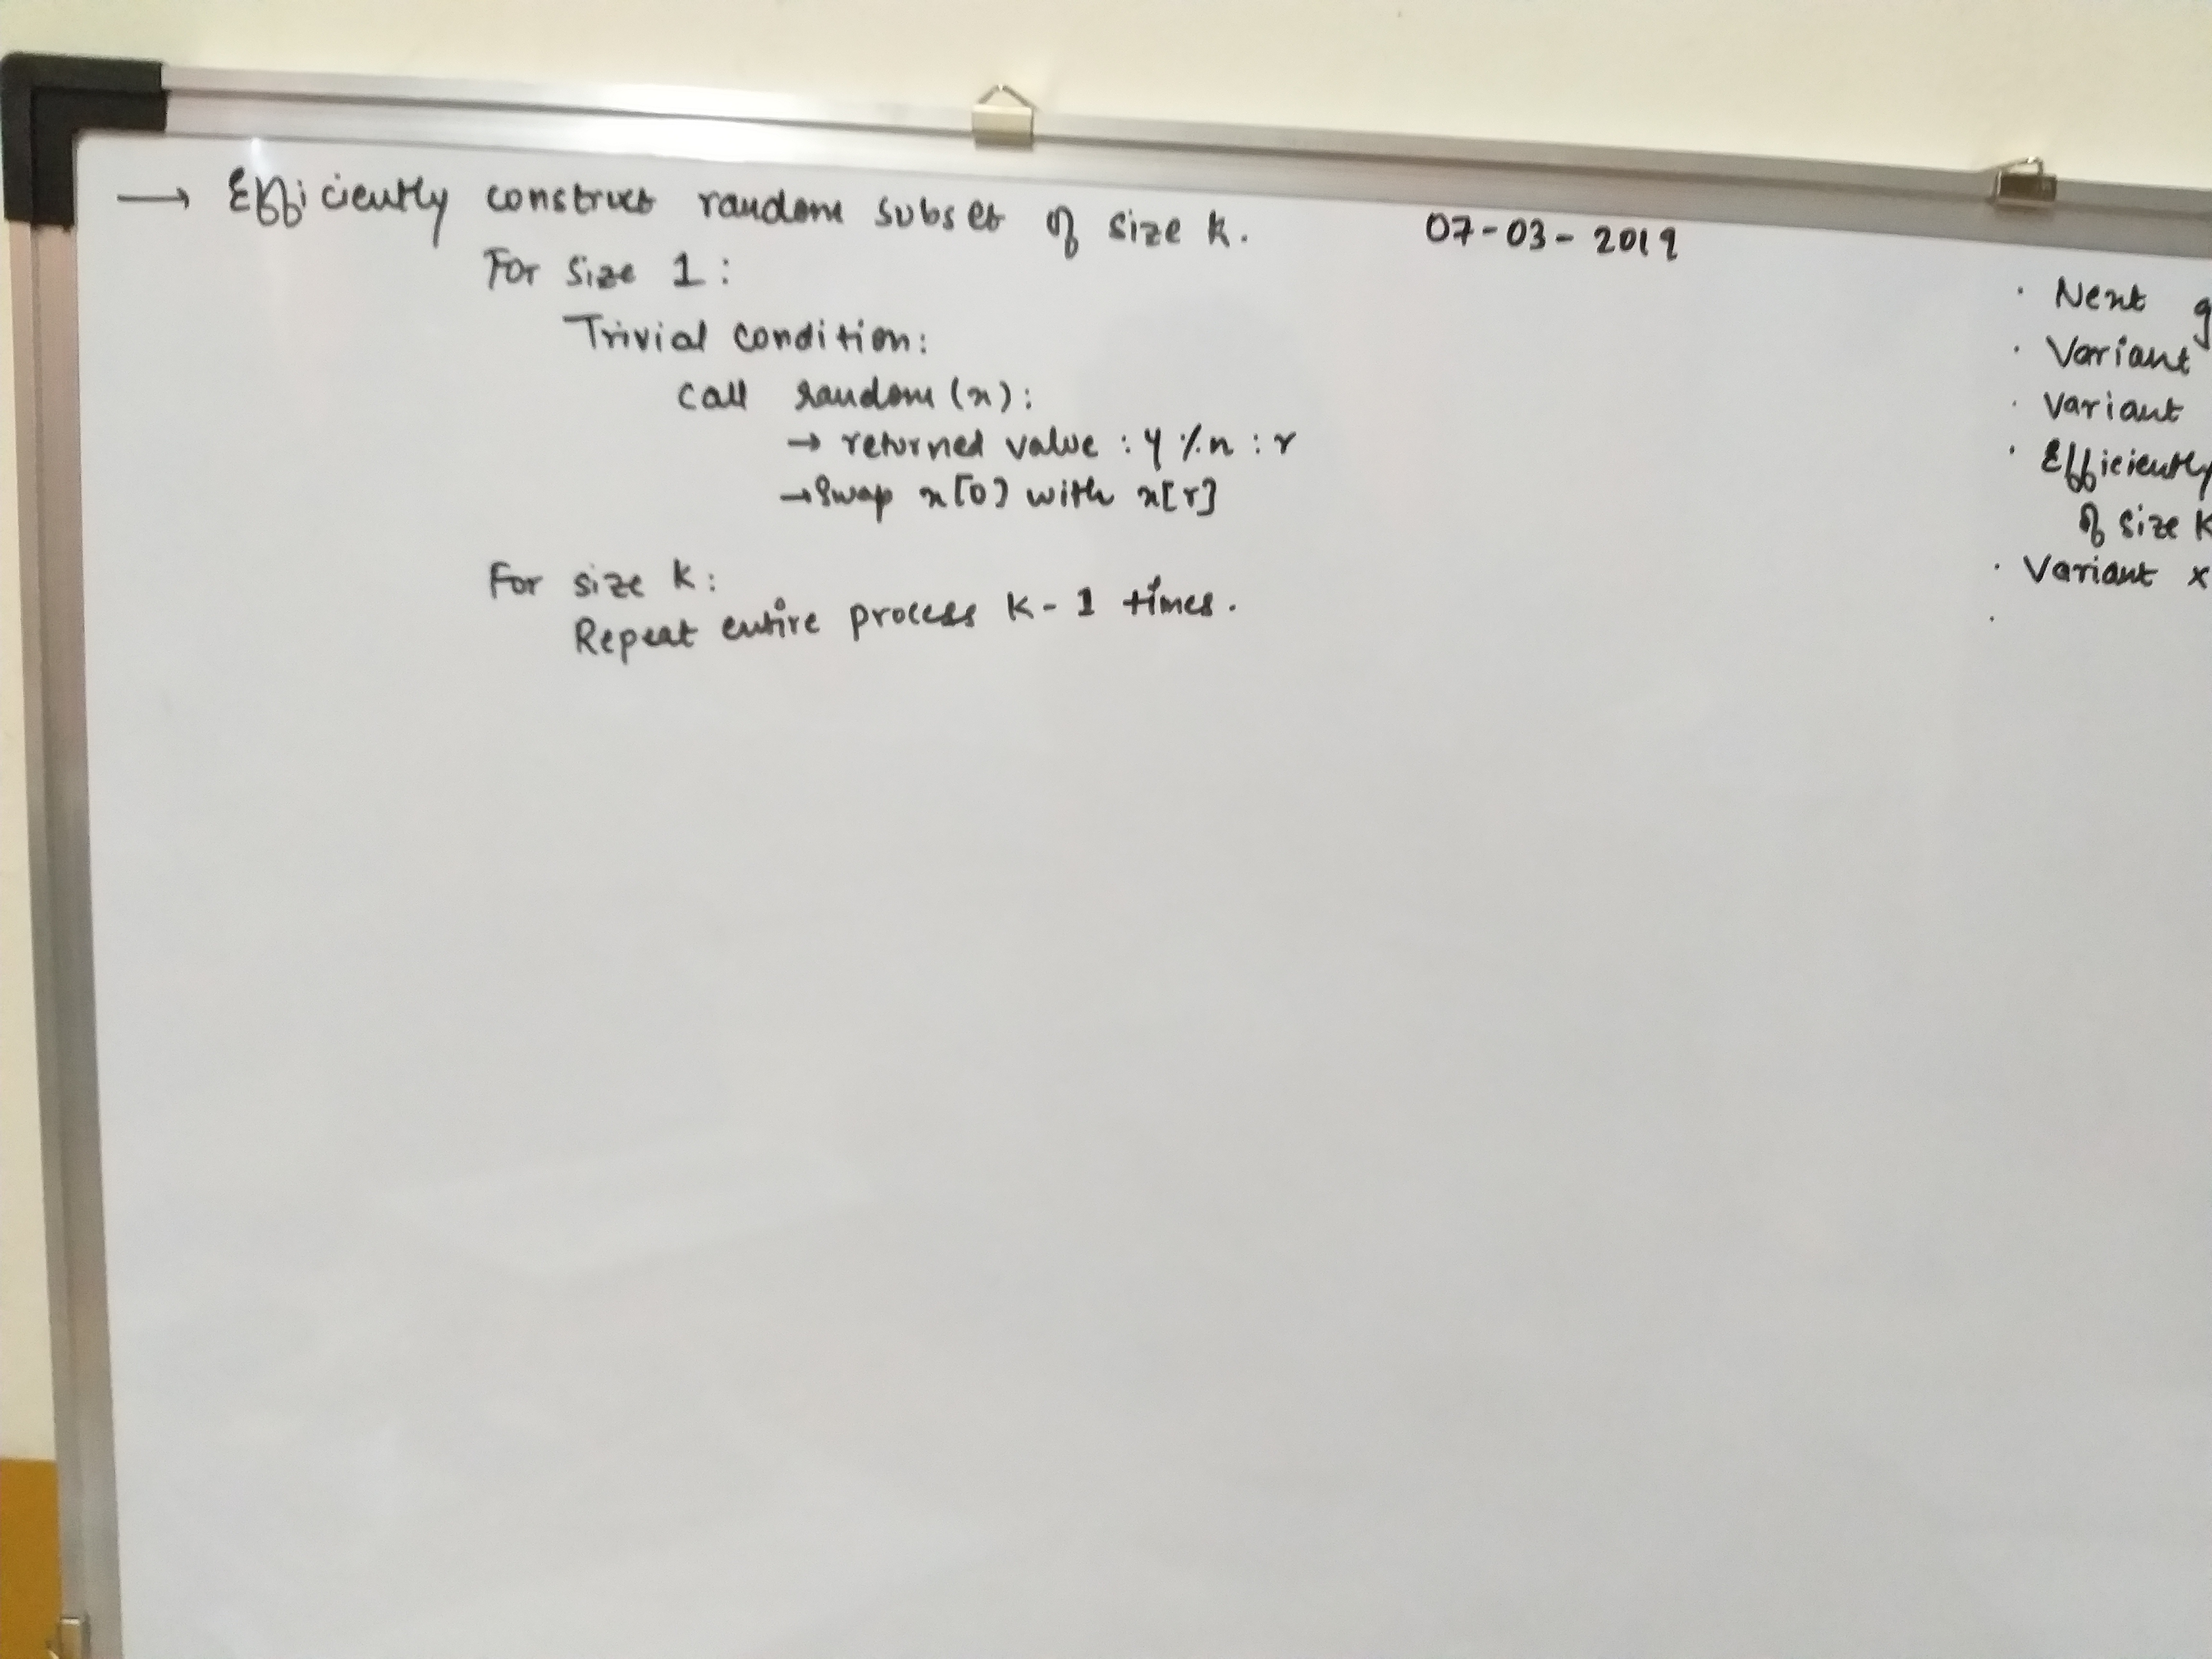 → Efficiently construct random subset of size k.
07-03-2019
For size 1:
Trivial condition:
call random (n):
→ returned value : y % n : r
→ swap x[0] with x[r]
For size k:
Repeat entire process k-1 times.
· Next g
· Variant
· Variant
· Efficiently
of size k
· Variant x
·